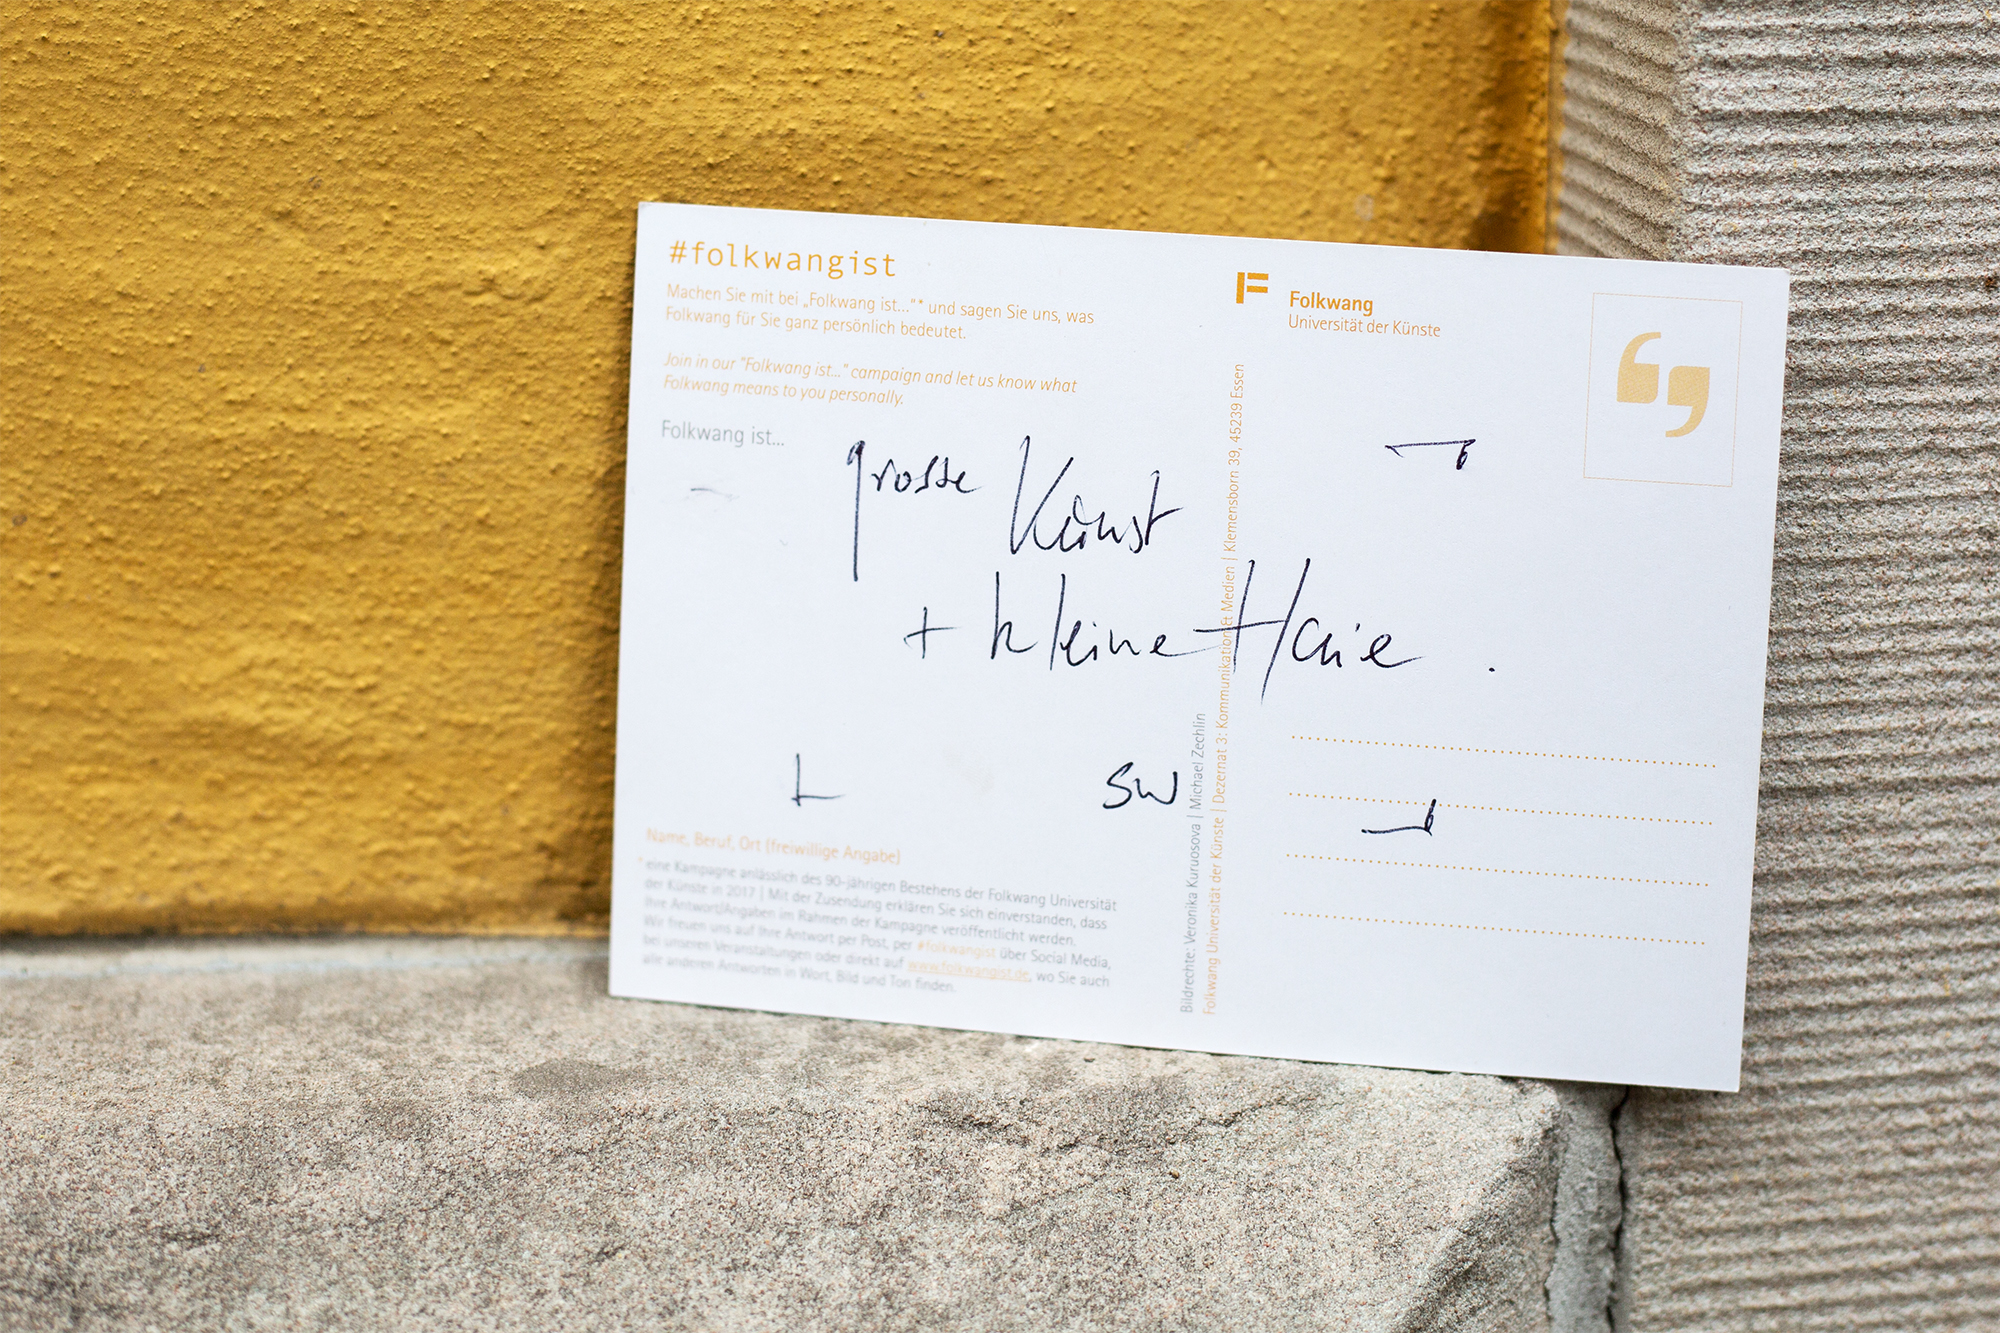 #folkwangist
Machen Sie mit bei „Folkwang ist...“* und sagen Sie uns, was
Folkwang für Sie ganz persönlich bedeutet.
Join in our "Folkwang ist..." campaign and let us know what
Folkwang means to you personally.
Folkwang ist...
grosse Kunst
+ kleine Haie .
SW
Name, Beruf, Ort (freiwillige Angabe)
* eine Kampagne anlässlich des 90-jährigen Bestehens der Folkwang Universität
der Künste in 2017 | Mit der Zusendung erklären Sie sich einverstanden, dass
Ihre Antwort/Angaben im Rahmen der Kampagne veröffentlicht werden.
Wir freuen uns auf Ihre Antwort per Post, per #folkwangist über Social Media,
bei unseren Veranstaltungen oder direkt auf www.folkwangist.de, wo Sie auch
alle anderen Antworten in Wort, Bild und Ton finden.
Bildrechte: Veronika Kurnosova | Michael Zechlin
Folkwang Universität der Künste | Dezernat 3: Kommunikation & Medien | Klemensborn 39, 45239 Essen
Folkwang
Universität der Künste